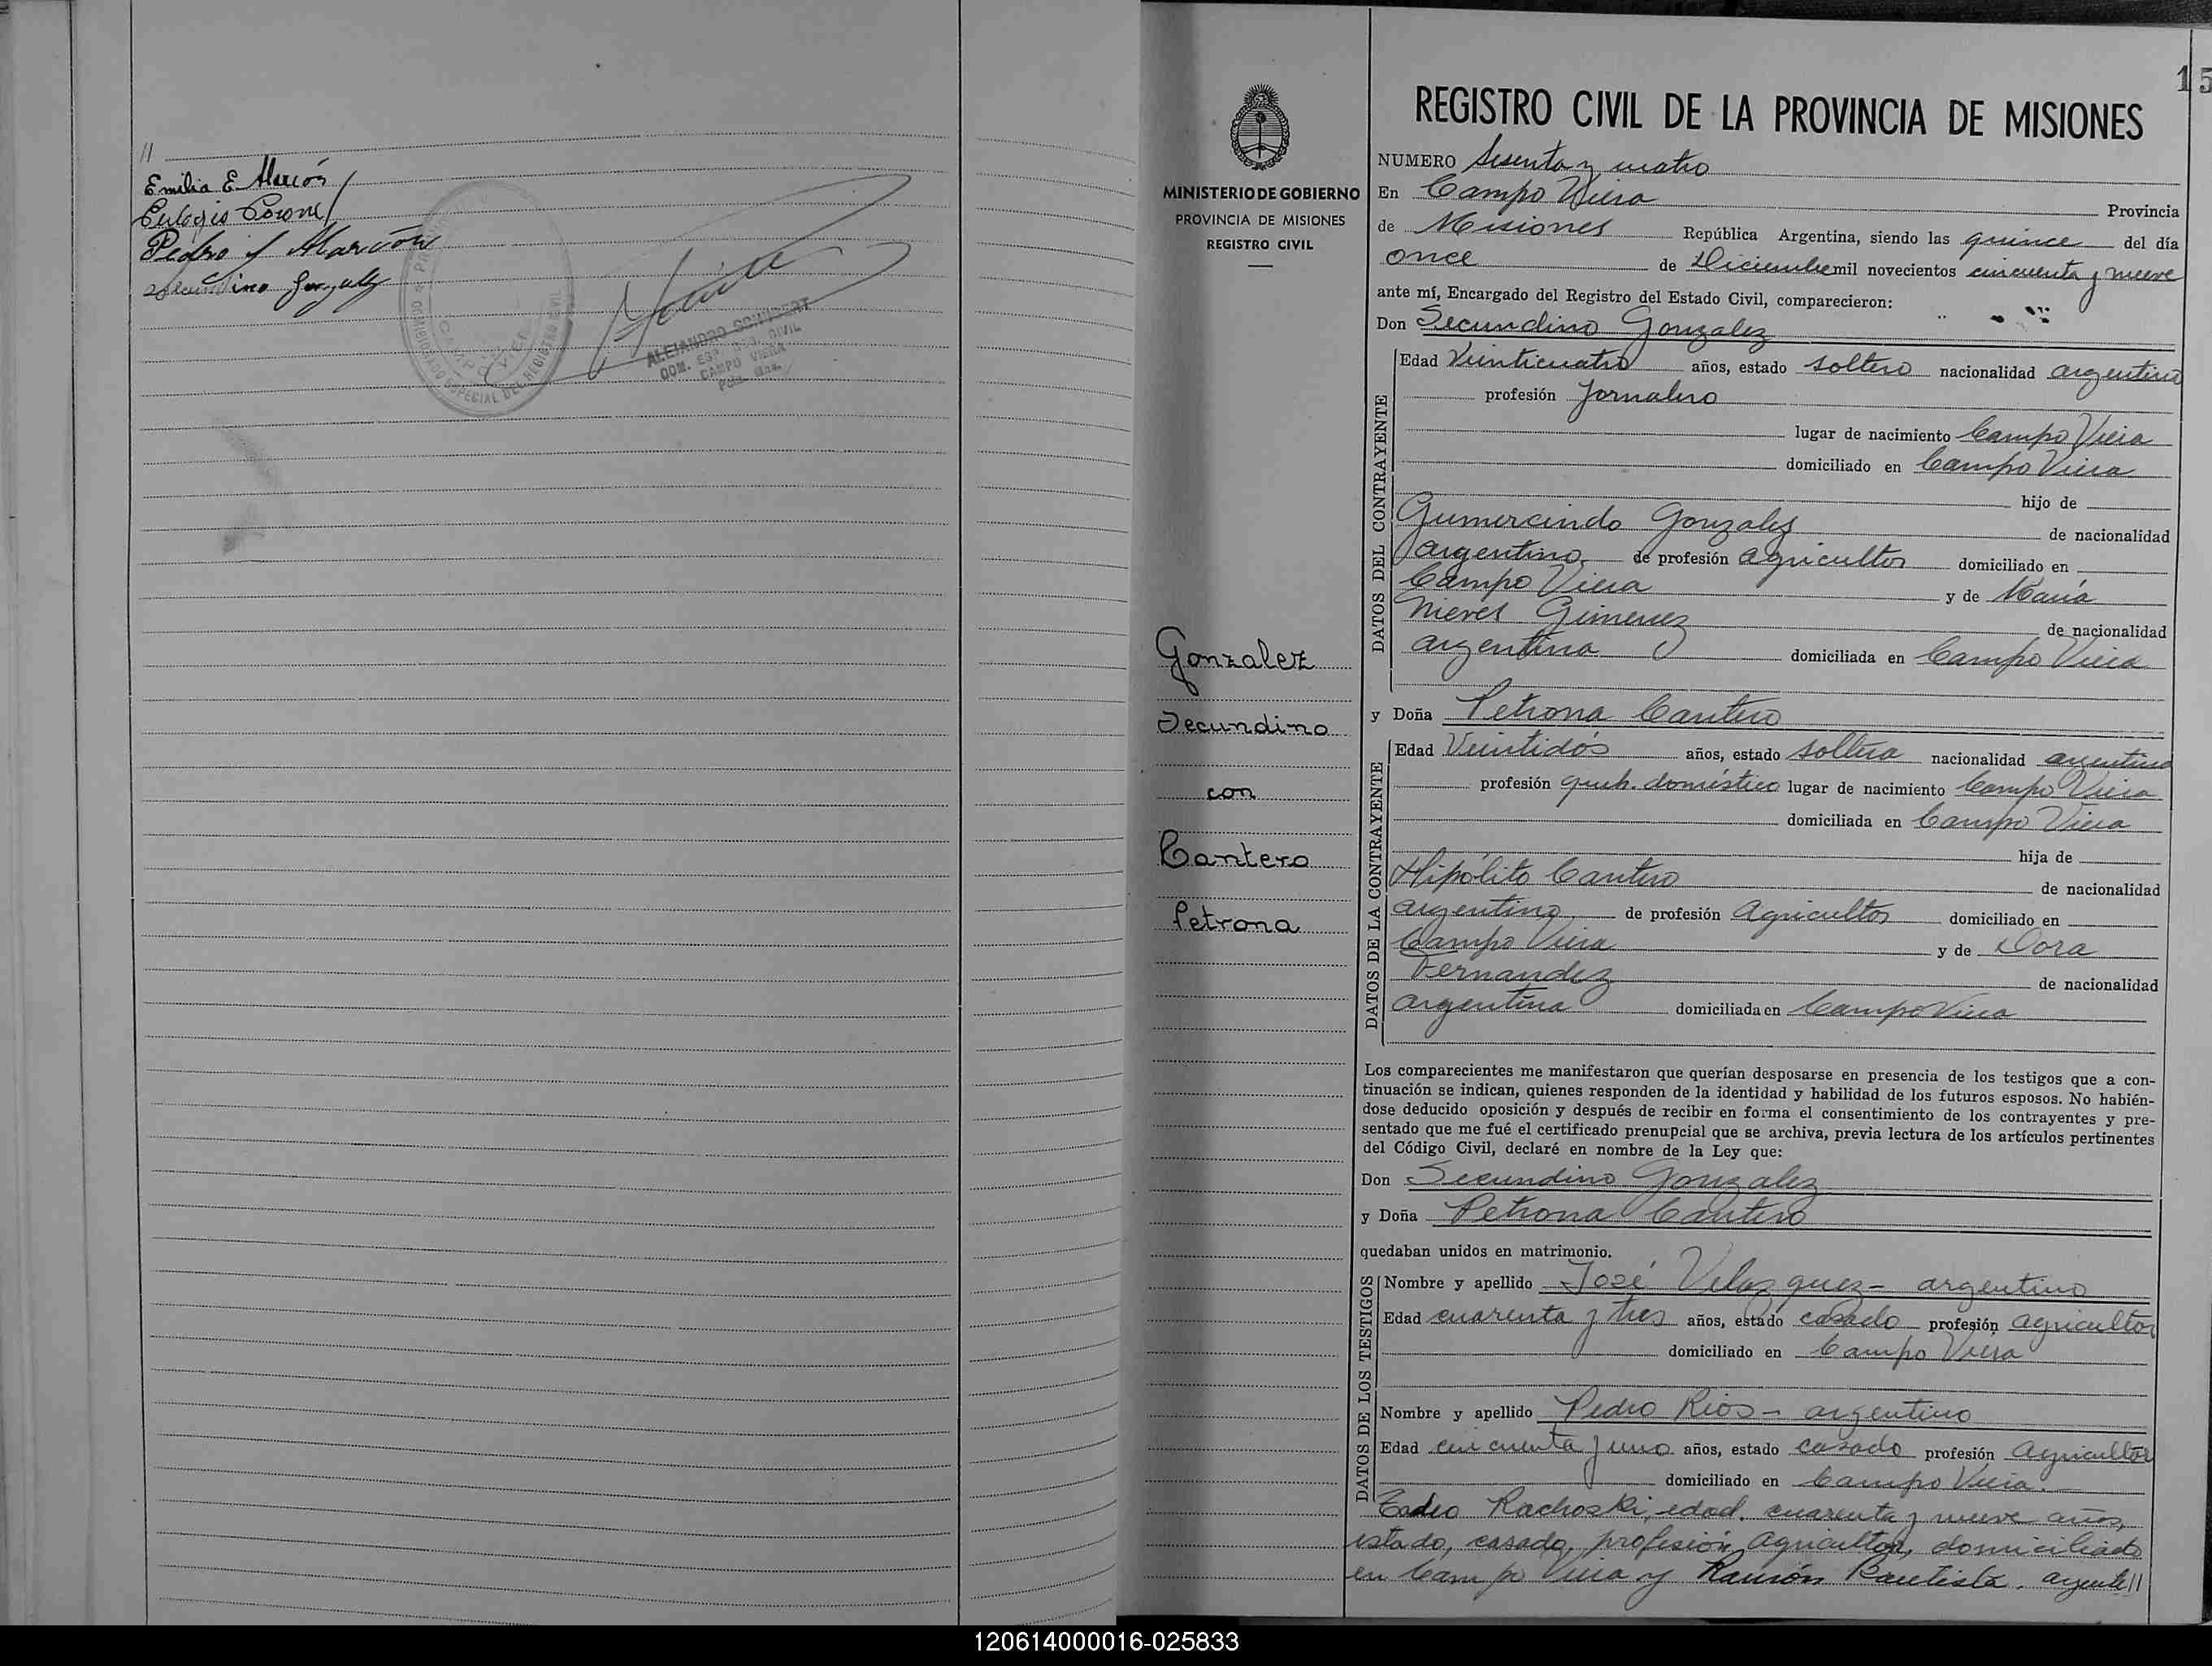 //
Emilia E. Alarcón
Eulogio Coronel
Pedro J. Alarcón
Secundino Gonzalez
ALEJANDRO
CIVIL
CAMPO VIERA
15
REGISTRO CIVIL DE LA PROVINCIA DE MISIONES
MINISTERIO DE GOBIERNO
PROVINCIA DE MISIONES
REGISTRO CIVIL
Gonzalez
Secundino
con
Cantero
Petrona
NUMERO Sesenta y cuatro
En Campo Viera Provincia
de Misiones República Argentina, siendo las quince del día
once de Diciembre mil novecientos cincuenta y nueve
ante mí, Encargado del Registro del Estado Civil, comparecieron:
Don Secundino Gonzalez
DATOS DEL CONTRAYENTE
Edad Veinticuatro años, estado soltero nacionalidad argentina
profesión Jornalero
lugar de nacimiento Campo Viera
domiciliado en Campo Viera
hijo de
Gumercindo Gonzalez de nacionalidad
argentino de profesión agricultor domiciliado en
Campo Viera y de María
Nieves Gimenez de nacionalidad
argentina domiciliada en Campo Viera
y Doña Petrona Cantero
DATOS DE LA CONTRAYENTE
Edad Veintidós años, estado soltera nacionalidad argentina
profesión queh. doméstico lugar de nacimiento Campo Viera
domiciliada en Campo Viera
hija de
Hipólito Cantero de nacionalidad
argentino de profesión Agricultor domiciliado en
Campo Viera y de Dora
Fernandez de nacionalidad
argentina domiciliada en Campo Viera
Los comparecientes me manifestaron que querían desposarse en presencia de los testigos que a con-
tinuación se indican, quienes responden de la identidad y habilidad de los futuros esposos. No habién-
dose deducido oposición y después de recibir en forma el consentimiento de los contrayentes y pre-
sentado que me fué el certificado prenupcial que se archiva, previa lectura de los artículos pertinentes
del Código Civil, declaré en nombre de la Ley que:
Don Secundino Gonzalez
y Doña Petrona Cantero
quedaban unidos en matrimonio.
DATOS DE LOS TESTIGOS
Nombre y apellido José Velazquez - argentino
Edad cuarenta y tres años, estado casado profesión agricultor
domiciliado en Campo Viera
Nombre y apellido Pedro Rios - argentino
Edad cincuenta y uno años, estado casado profesión agricultor
domiciliado en Campo Viera.
Tadeo Rachoski, edad. cuarenta y nueve años,
estado, casado, profesión, agricultor, domiciliado
en Campo Viera y Ramón Bautista. argenti//
120614000016-025833